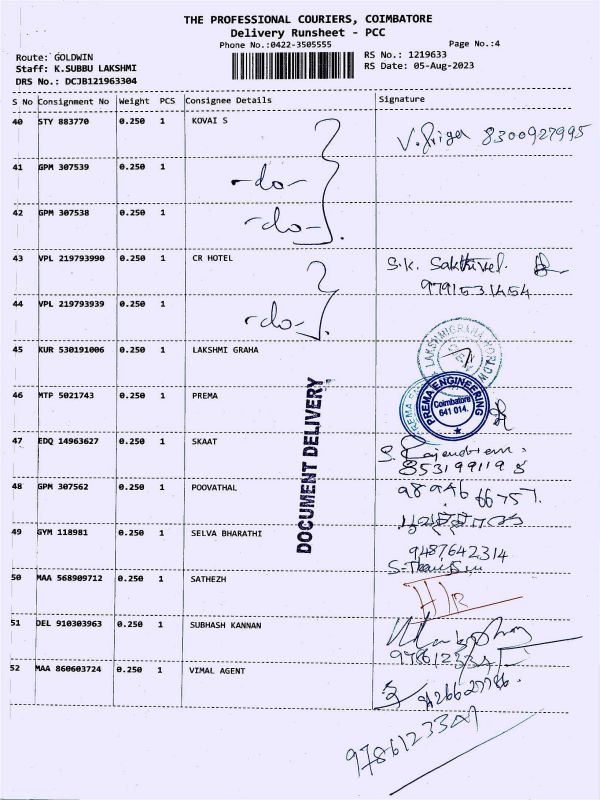 THE PROFESSIONAL COURIERS, COIMBATORE
Delivery Runsheet - PCC
Phone No.:0422-3505555
Page No.:4
Route: GOLDWIN
RS No.: 1219633
Staff: K.SUBBU LAKSHMI
RS Date: 05-Aug-2023
DRS No.: DCJB121963304
S No Consignment No Weight PCS Consignee Details Signature
40 STY 883770 0.250 1 KOVAI S V. Priya 8300927995
41 GPM 307539 0.250 1 -do-
42 GPM 307538 0.250 1 -do-
43 VPL 219793990 0.250 1 CR HOTEL S.K. Sakthivel.
9791531454
44 VPL 219793939 0.250 1 -do-
45 KUR 530191006 0.250 1 LAKSHMI GRAHA
LAKSHMIGRAHA WORLDW
46 MTP 5021743 0.250 1 PREMA
PREMA ENGINEERING
Coimbatore
641 014.
47 EDQ 14963627 0.250 1 SKAAT S. Rajendran.
DOCUMENT DELIVERY
48 GPM 307562 0.250 1 POOVATHAL
49 GYM 118981 0.250 1 SELVA BHARATHI
9487642314
50 MAA 568909712 0.250 1 SATHEZH
51 DEL 910303963 0.250 1 SUBHASH KANNAN
52 MAA 860603724 0.250 1 VIMAL AGENT